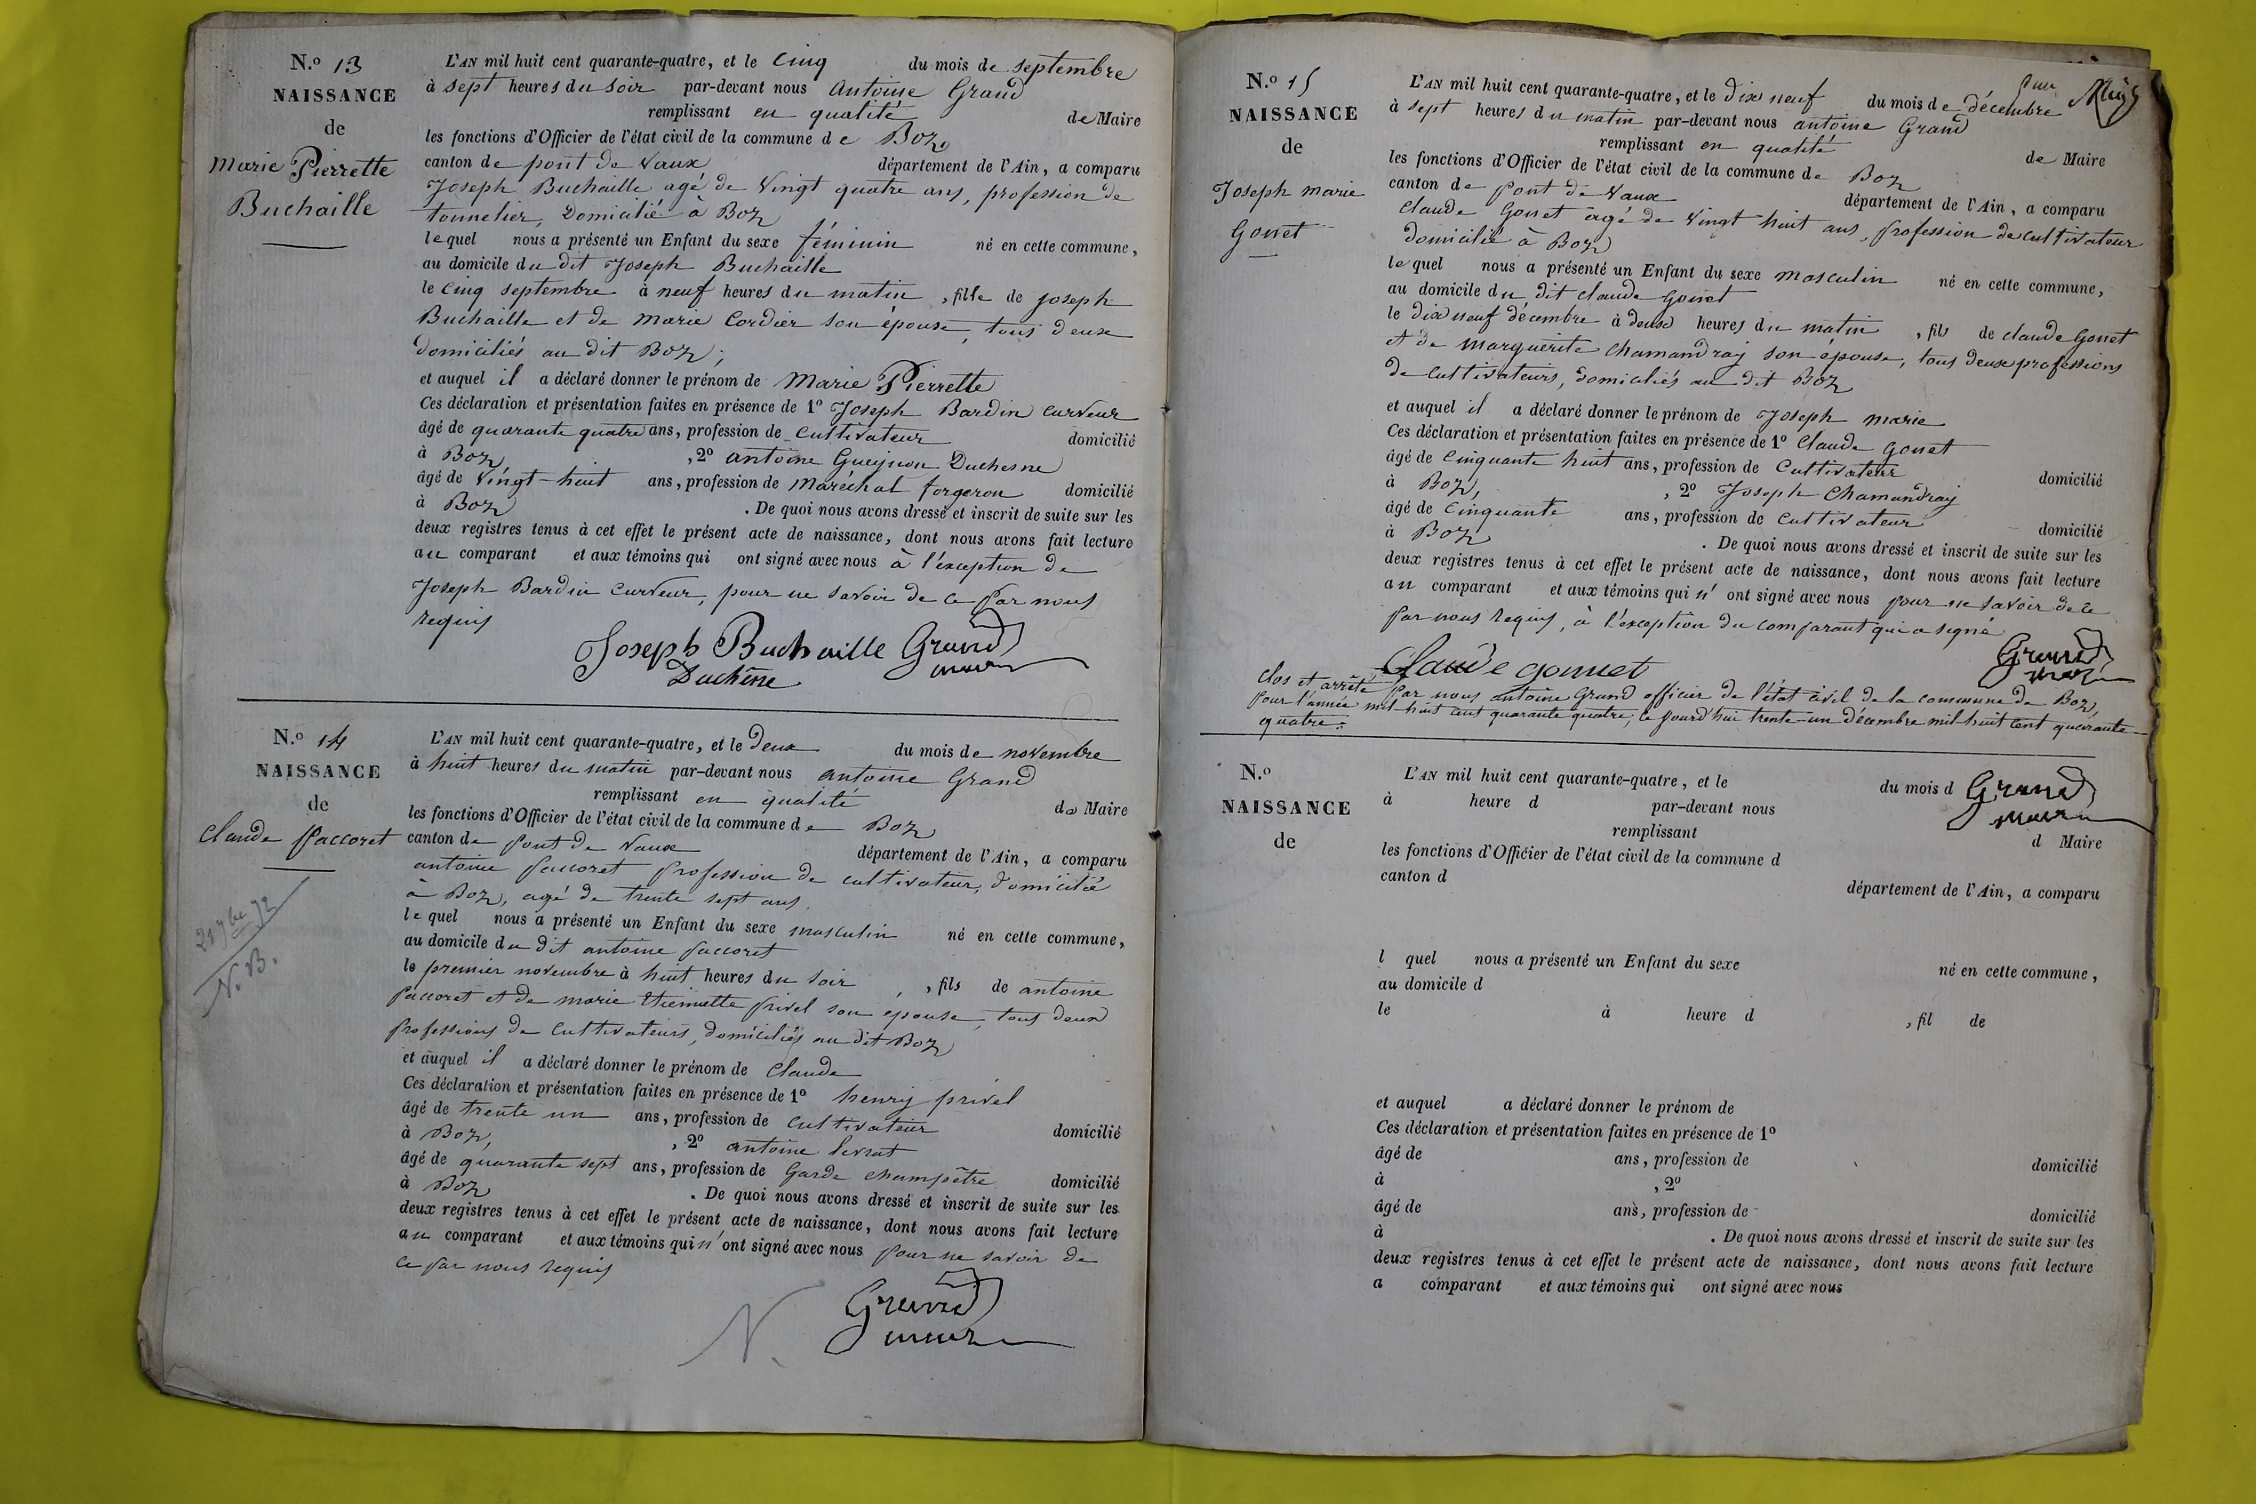 N.º 13
NAISSANCE
de
Marie Pierrette
Buchaille
L'AN mil huit cent quarante-quatre, et le cinq du mois de septembre
à sept heures du soir par-devant nous Antoine Grand
remplissant en qualité de Maire
les fonctions d'Officier de l'état civil de la commune de Boz,
canton de pont de Vaux département de l'Ain, a comparu
Joseph Buchaille agé de Vingt quatre ans, profession de
tonnelier, Domicilié à Boz
lequel nous a présenté un Enfant du sexe féminin né en cette commune,
au domicile du dit Joseph Buchaille
le cinq septembre à neuf heures du matin, fille de joseph
Buchaille et de Marie Cordier son épouse, tous deux
domiciliés au dit Boz;
et auquel il a déclaré donner le prénom de Marie Pierrette
Ces déclaration et présentation faites en présence de 1º Joseph Bardin curveur
âgé de quarante quatre ans, profession de cultivateur domicilié
à Boz, 2º antoine Gueynon Duchesne
âgé de Vingt-huit ans, profession de Maréchal forgeron domicilié
à Boz. De quoi nous avons dressé et inscrit de suite sur les
deux registres tenus à cet effet le présent acte de naissance, dont nous avons fait lecture
au comparant et aux témoins qui ont signé avec nous à l'éxception de
Joseph Bardin curveur, pour ne savoir de ce par nous
requis
Joseph Buchaille Grand
Duchêne maire
N.º 14
NAISSANCE
de
Claude paccoret
21 7bre 72
N.B.
L'AN mil huit cent quarante-quatre, et le deux du mois de novembre
à huit heures du matin par-devant nous antoine Grand
remplissant en qualité de Maire
les fonctions d'Officier de l'état civil de la commune de Boz
canton de pont de Vaux département de l'Ain, a comparu
antoine paccoret profession de cultivateur, domicilié
à Boz, agé de trente sept ans,
le quel nous a présenté un Enfant du sexe masculin né en cette commune,
au domicile du dit antoine paccoret
le premier novembre à huit heures du soir, fils de antoine
paccoret et de marie thiemette privel son épouse, tous deux
professions de cultivateurs, domiciliés au dit Boz
et auquel il a déclaré donner le prénom de Claude
Ces déclaration et présentation faites en présence de 1º henry privel
âgé de trente un ans, profession de cultivateur domicilié
à Boz, 2º antoine
âgé de quarante sept ans, profession de Garde champêtre domicilié
à Boz. De quoi nous avons dressé et inscrit de suite sur les
deux registres tenus à cet effet le présent acte de naissance, dont nous avons fait lecture
au comparant et aux témoins qui n'ont signé avec nous pour ne savoir de
ce par nous requis
N.
Grand
maire
N.º 15
NAISSANCE
de
Joseph marie
Gonet
L'AN mil huit cent quarante-quatre, et le dix neuf du mois de décembre
à sept heures du matin par-devant nous antoine Grand
remplissant en qualité de Maire
les fonctions d'Officier de l'état civil de la commune de Boz
canton de pont de Vaux département de l'Ain, a comparu
Claude Gonet agé de vingt huit ans, profession de cultivateur
domicilié à Boz
le quel nous a présenté un Enfant du sexe masculin né en cette commune,
au domicile du dit claude gonet
le dix neuf décembre à deux heures du matin, fils de claude Gonet
et de marguerite chamandray son épouse, tous deux professions
de cultivateurs, domiciliés au dit Boz
et auquel il a déclaré donner le prénom de Joseph marie
Ces déclaration et présentation faites en présence de 1º Claude gonet
âgé de cinquante huit ans, profession de Cultivateur domicilié
à Boz, 2º Joseph Chamandray
âgé de cinquante ans, profession de cultivateur domicilié
à Boz. De quoi nous avons dressé et inscrit de suite sur les
deux registres tenus à cet effet le présent acte de naissance, dont nous avons fait lecture
au comparant et aux témoins qui n'ont signé avec nous pour ne savoir de ce
par nous requis, à l'éxception du comparant qui a signé
Claude gonnet Grand
maire
Clos et arrêté par nous antoine Grand officier de l'état civil de la commune de Boz,
pour l'année mil-huit cent quarante quatre, ce jourd'hui trente-un décembre mil huit cent quarante-
quatre.
Grand
maire
N.º
NAISSANCE
de
L'AN mil huit cent quarante-quatre, et le du mois d
à heure d par-devant nous
remplissant d Maire
les fonctions d'Officier de l'état civil de la commune d
canton d département de l'Ain, a comparu
l quel nous a présenté un Enfant du sexe né en cette commune,
au domicile d
le à heure d , fil de
et auquel a déclaré donner le prénom de
Ces déclaration et présentation faites en présence de 1º
âgé de ans, profession de domicilié
à , 2º
âgé de ans, profession de domicilié
à . De quoi nous avons dressé et inscrit de suite sur les
deux registres tenus à cet effet le présent acte de naissance, dont nous avons fait lecture
a comparant et aux témoins qui ont signé avec nous